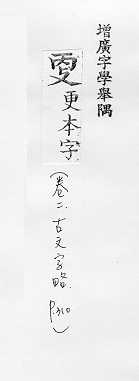 增廣字學舉隅
㪅更本字
(卷二.古文字略.P.310)